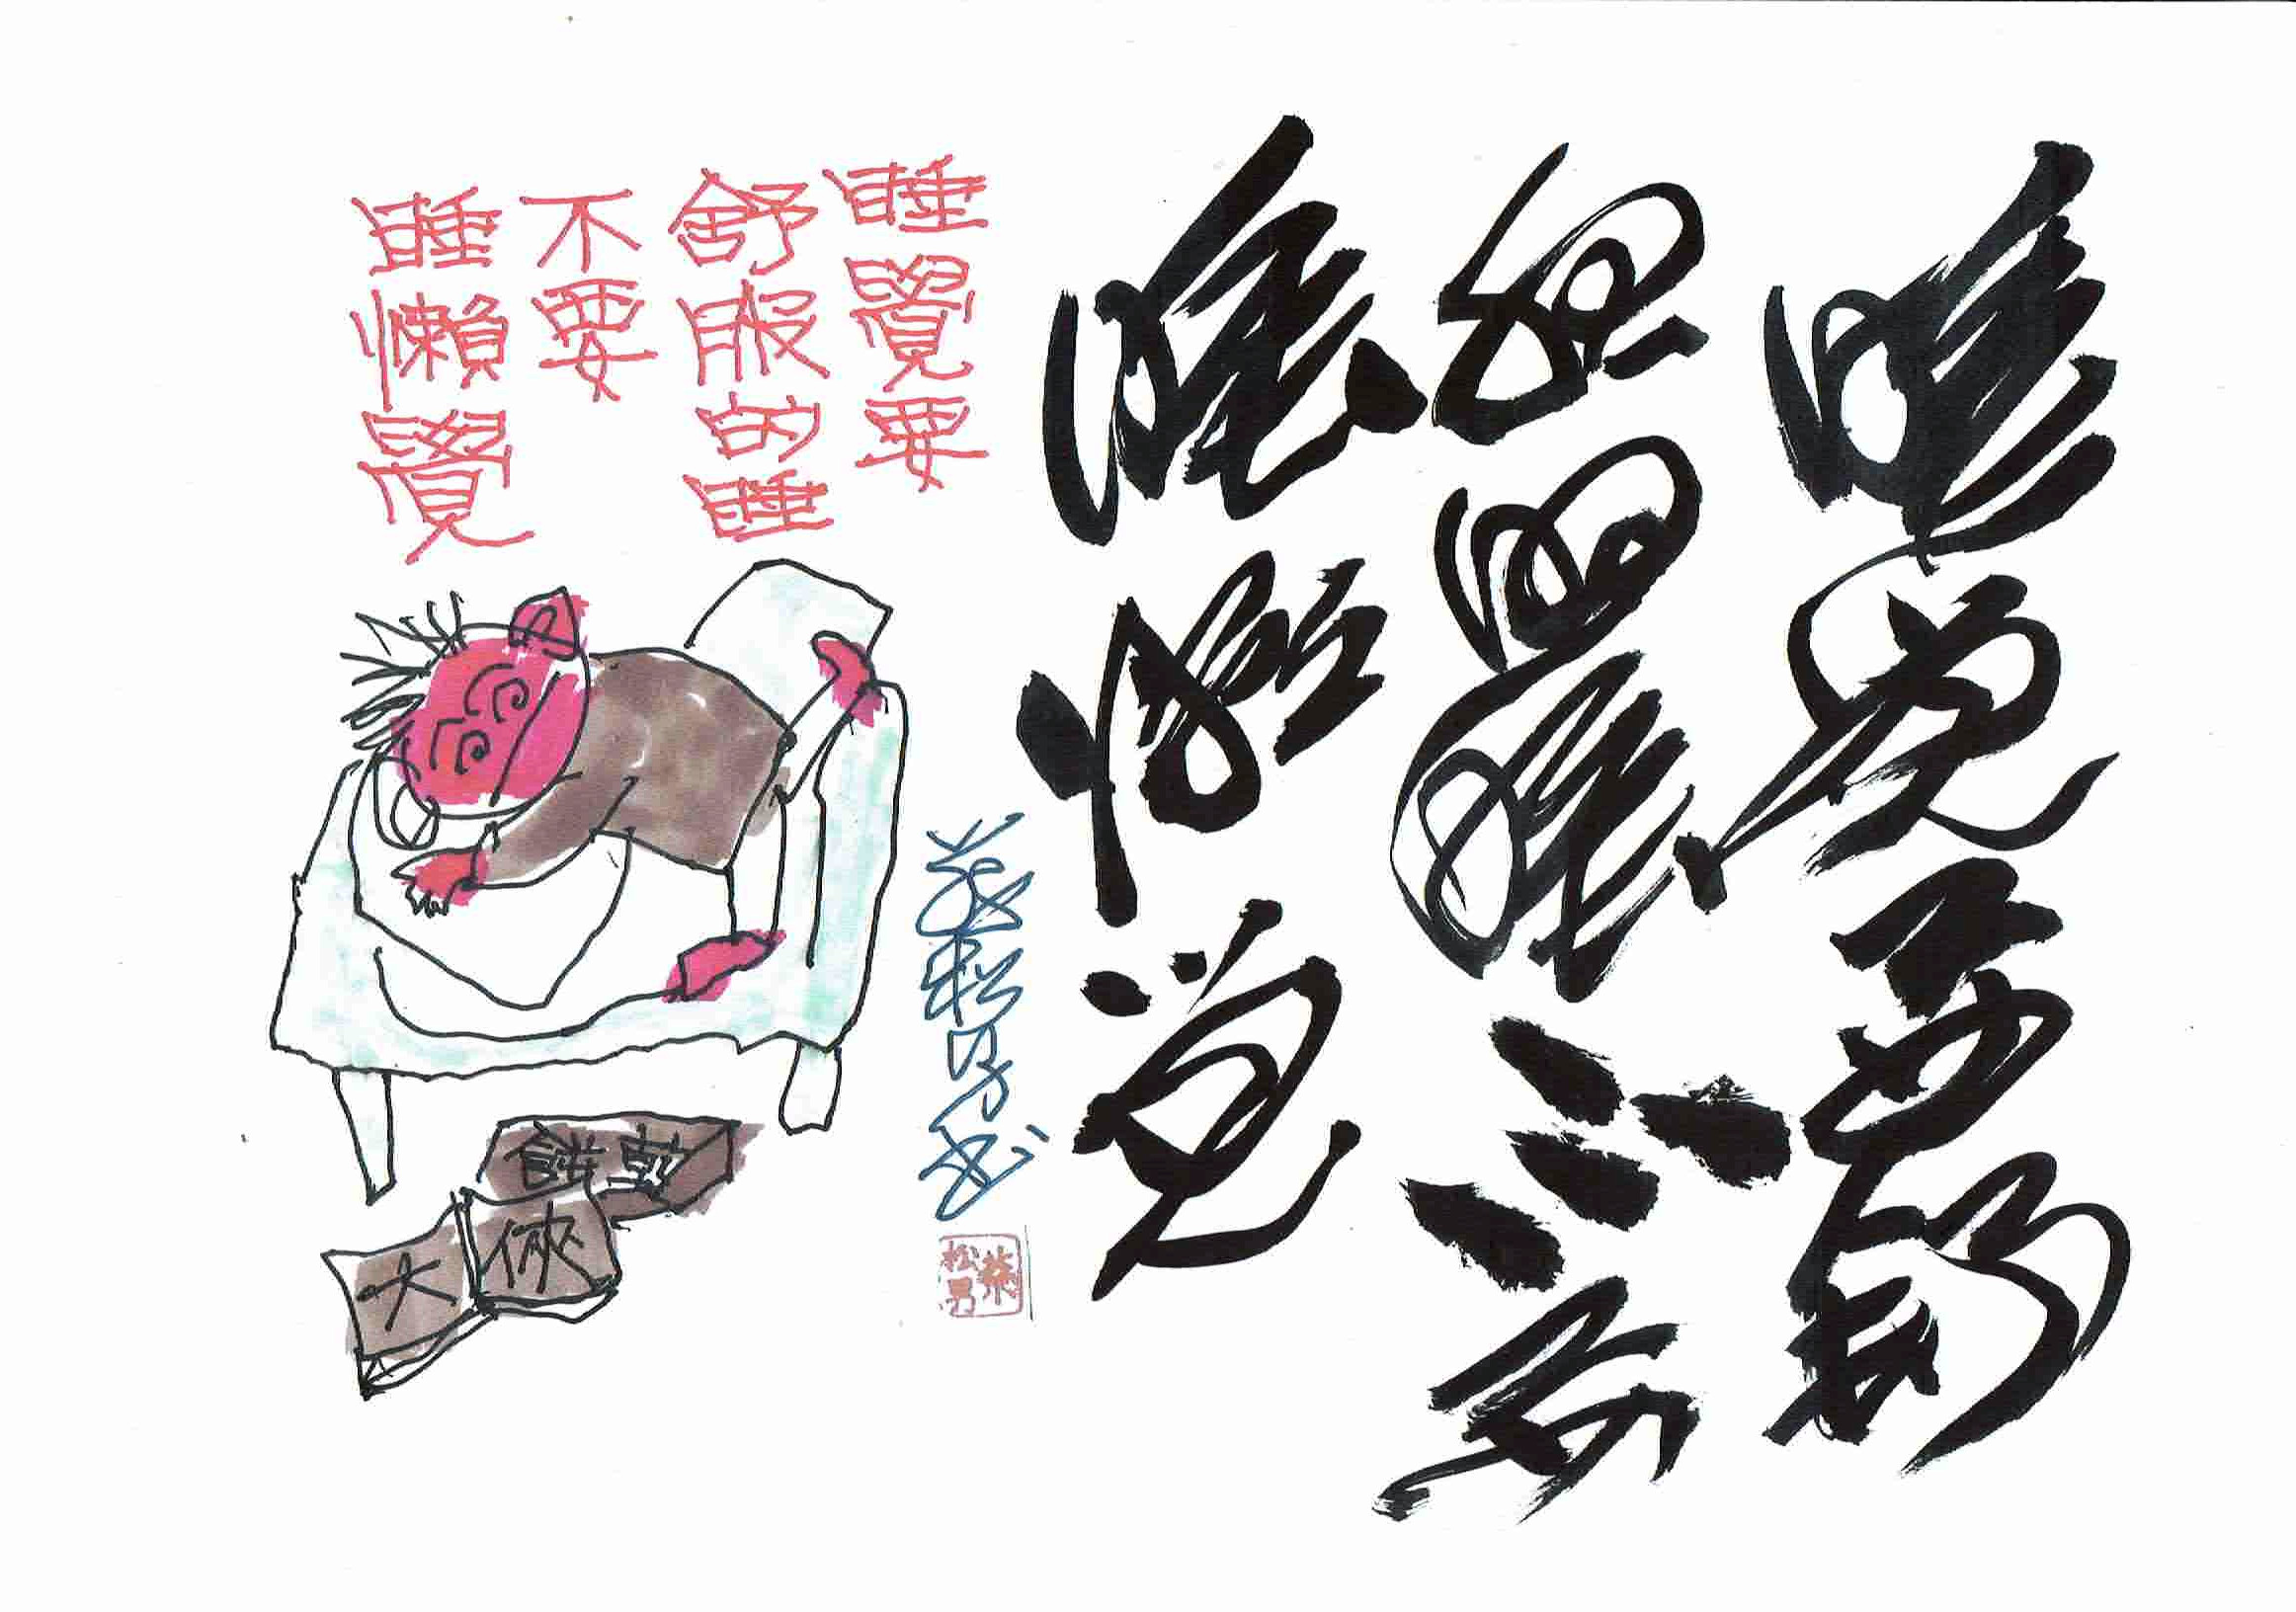 睡覺要舒
服的睡不要
睡懶覺
睡覺要
舒服的睡
不要
睡懶覺
蔡松男書
蔡松男
大俠